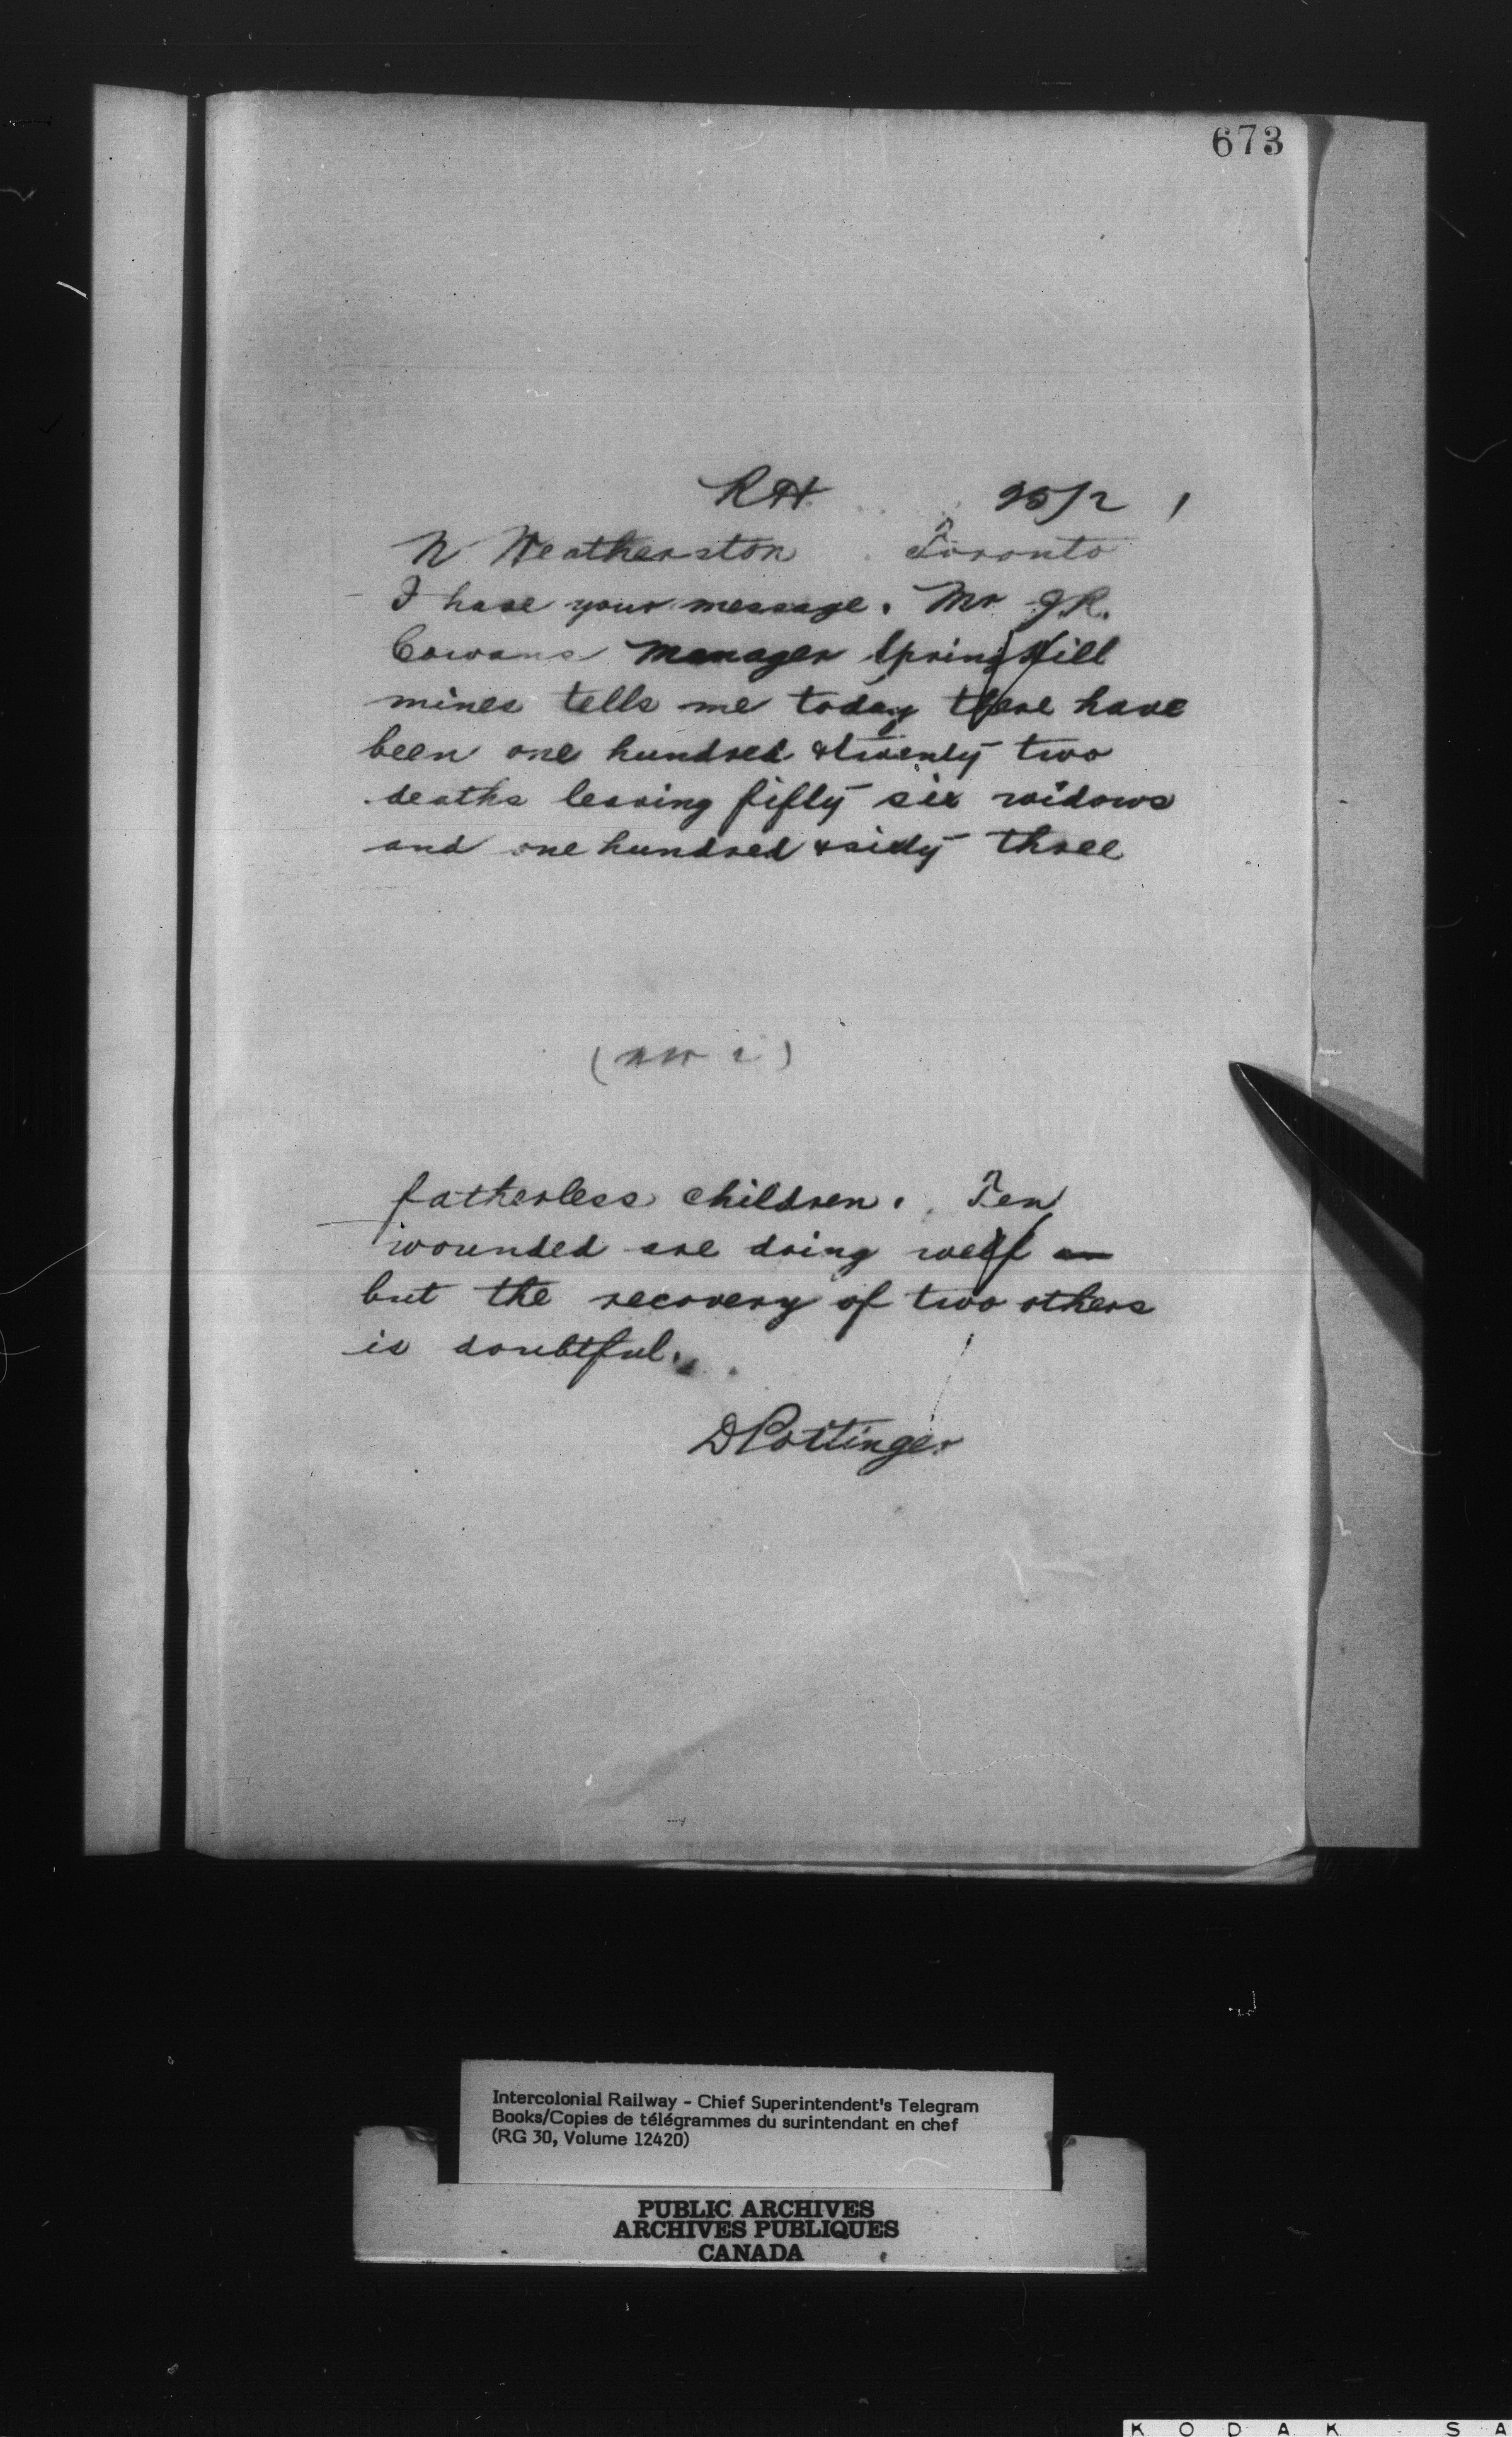 673
RH 25/2
N Weatherston Toronto
I have your message. Mr J.R.
Cowans manager Spring Hill
mines tells me today there have
been one hundred & twenty two
deaths leaving fifty six widows
and one hundred & sixty three
(NW 2)
fatherless children. Ten
wounded are doing well
but the recovery of two others
is doubtful.
D Pottinger
Intercolonial Railway - Chief Superintendent's Telegram
Books/Copies de télégrammes du surintendant en chef
(RG 30, Volume 12420)
PUBLIC ARCHIVES
ARCHIVES PUBLIQUES
CANADA
KODAK SA